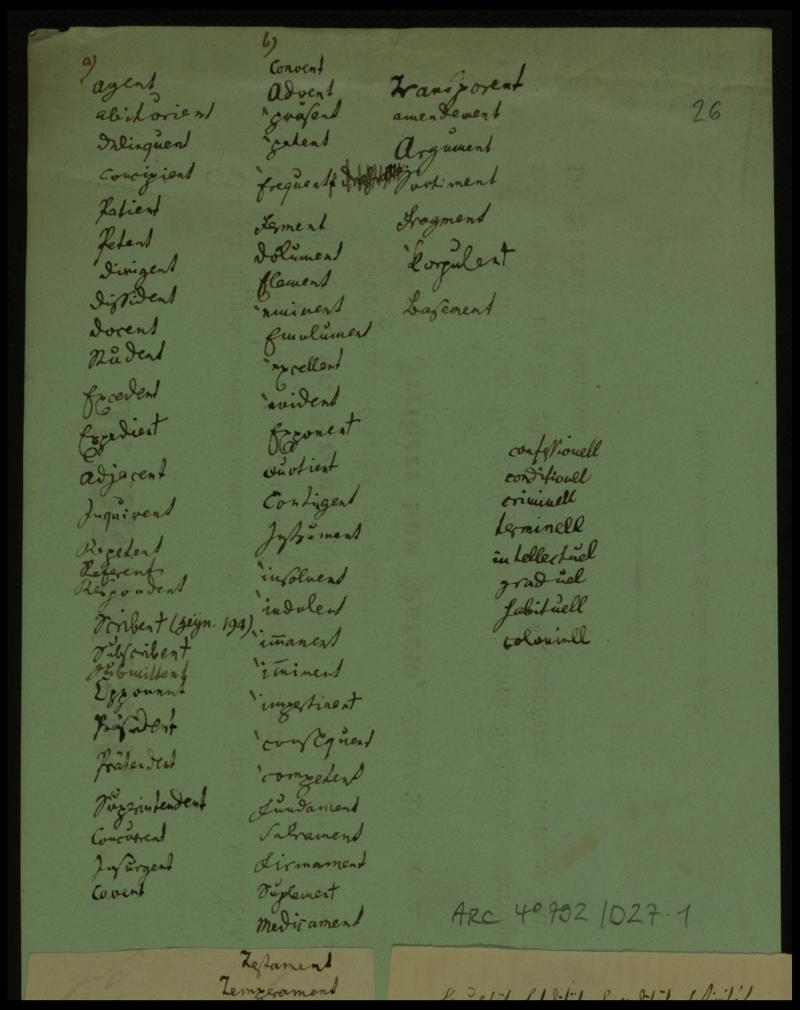 a)
agent
abiturient
Delinquent
Concipient
Patient
Petent
Dirigent
Dissident
Docent
Student
Excedent
Expedient
Adjacent
Inquirent
Repetent
Referent
Respondent
Scribent (zeijn. 194)
Subscribent
Submittent
Opponent
Präsident
Prätendent
Superintendent
Concurrent
Insurgent
Covent
b)
Convent
Advent
präsent
patent
frequent
Ferment
Dokument
Element
eminent
Emolument
excellent
evident
Exponent
Quotient
Contingent
Instrument
insolvent
indolent
im̄anent
im̄inent
impertinent
consequent
competent
Fundament
Sakrament
Firmament
Suplement
Medicament
Testament
Temperament
Transparent
amendement
Argument
Sortiment
Fragment
Korpulent
Basement
26
confessionell
conditionell
criminell
terminell
intellectuel
graduel
habituell
coloniell
ARC 4° 792 / D27-1